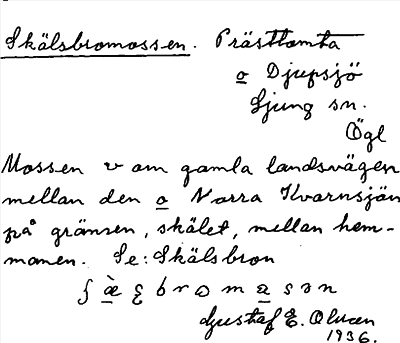 Skälsbromossen. Prästtomta
o Djupsjö
Ljung sn.
Ögl
Mossen v om gamla landsvägen
mellan den o Norra Kvarnsjön
på gränsen, skälet, mellan hem-
manen. Se: Skälsbron
Gustaf E. Olsson
1936.